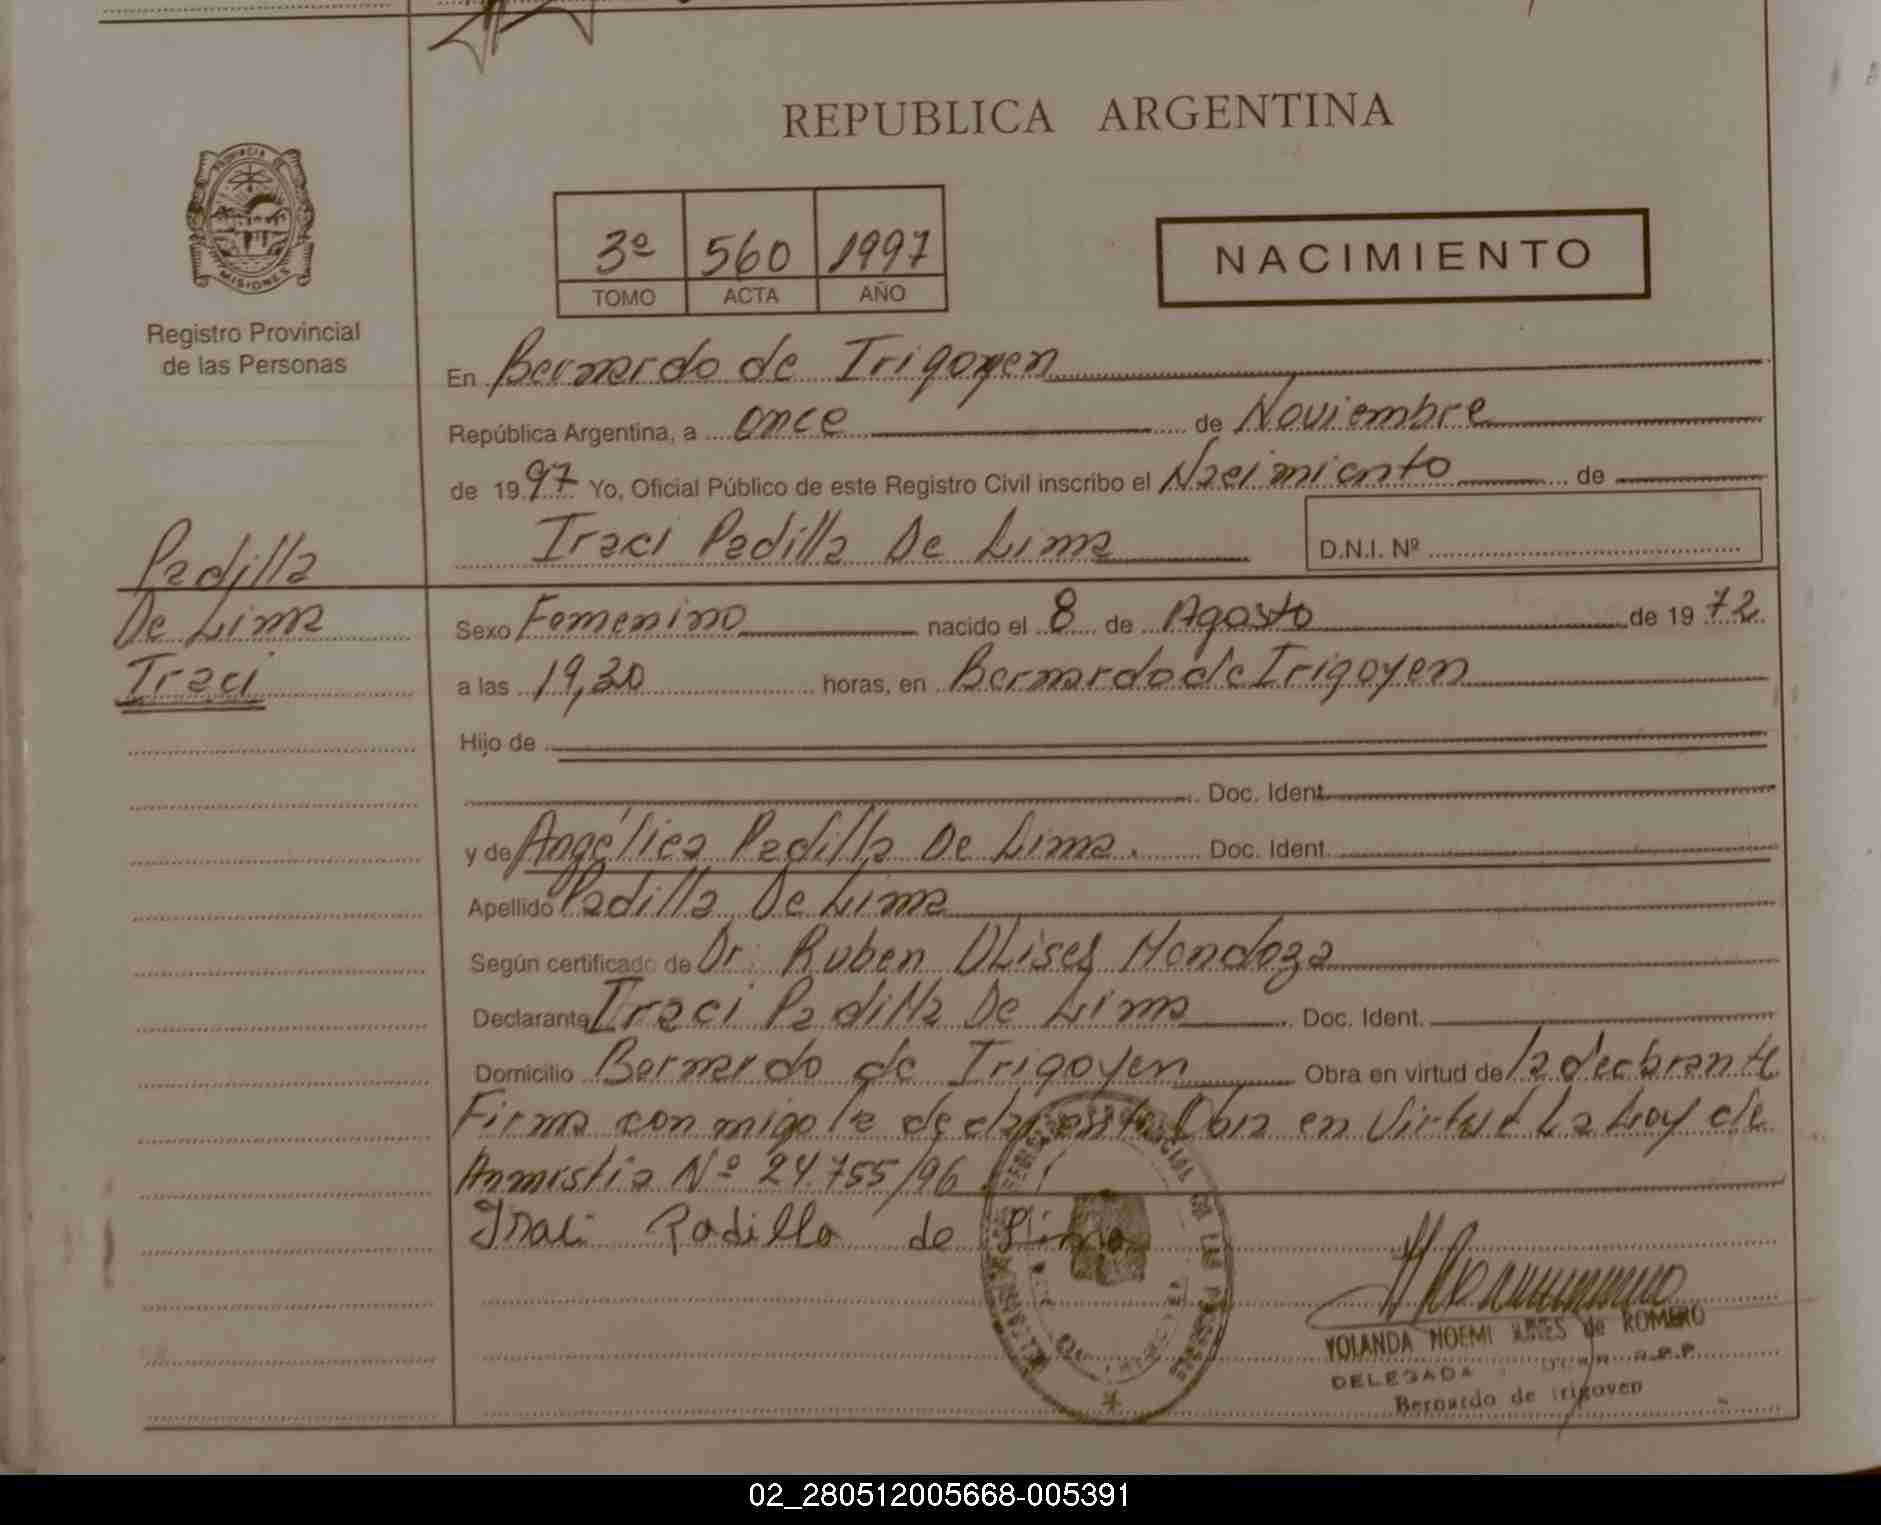 REPUBLICA ARGENTINA
PROVINCIA DE
MISIONES
Registro Provincial
de las Personas
3º 560 1997
TOMO ACTA AÑO
NACIMIENTO
En Bernardo de Irigoyen
República Argentina, a once de Noviembre
de 1997 Yo, Oficial Público de este Registro Civil inscribo el Nacimiento de
Iraci Padilla De Lima D.N.I. Nº
Padilla
De Lima
Iraci
Sexo Femenino nacido el 8 de Agosto de 1972
a las 19,30 horas, en Bernardo de Irigoyen
Hijo de
Doc. Ident.
y de Angélica Padilla De Lima. Doc. Ident.
Apellido Padilla De Lima
Según certificado de Dr. Ruben Ulises Mendoza
Declarante Iraci Padilla De Lima Doc. Ident.
Domicilio Bernardo de Irigoyen Obra en virtud de la declarante
Firma conmigo la declarante Obra en Virtud La Ley de
Anmistia Nº 24.755/96
Iraci Padilla de Lima
YOLANDA NOEMI de ROMERO
DELEGADA R.P.P.
Bernardo de Irigoyen
02_280512005668-005391